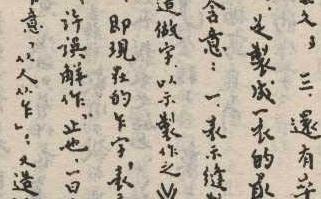 三、還有
製成一衣的最
含意：一、表示縫
造做字，以示製作之
即現在的乍字，表
許誤解作“止也，一曰
意，从人从乍”；又造